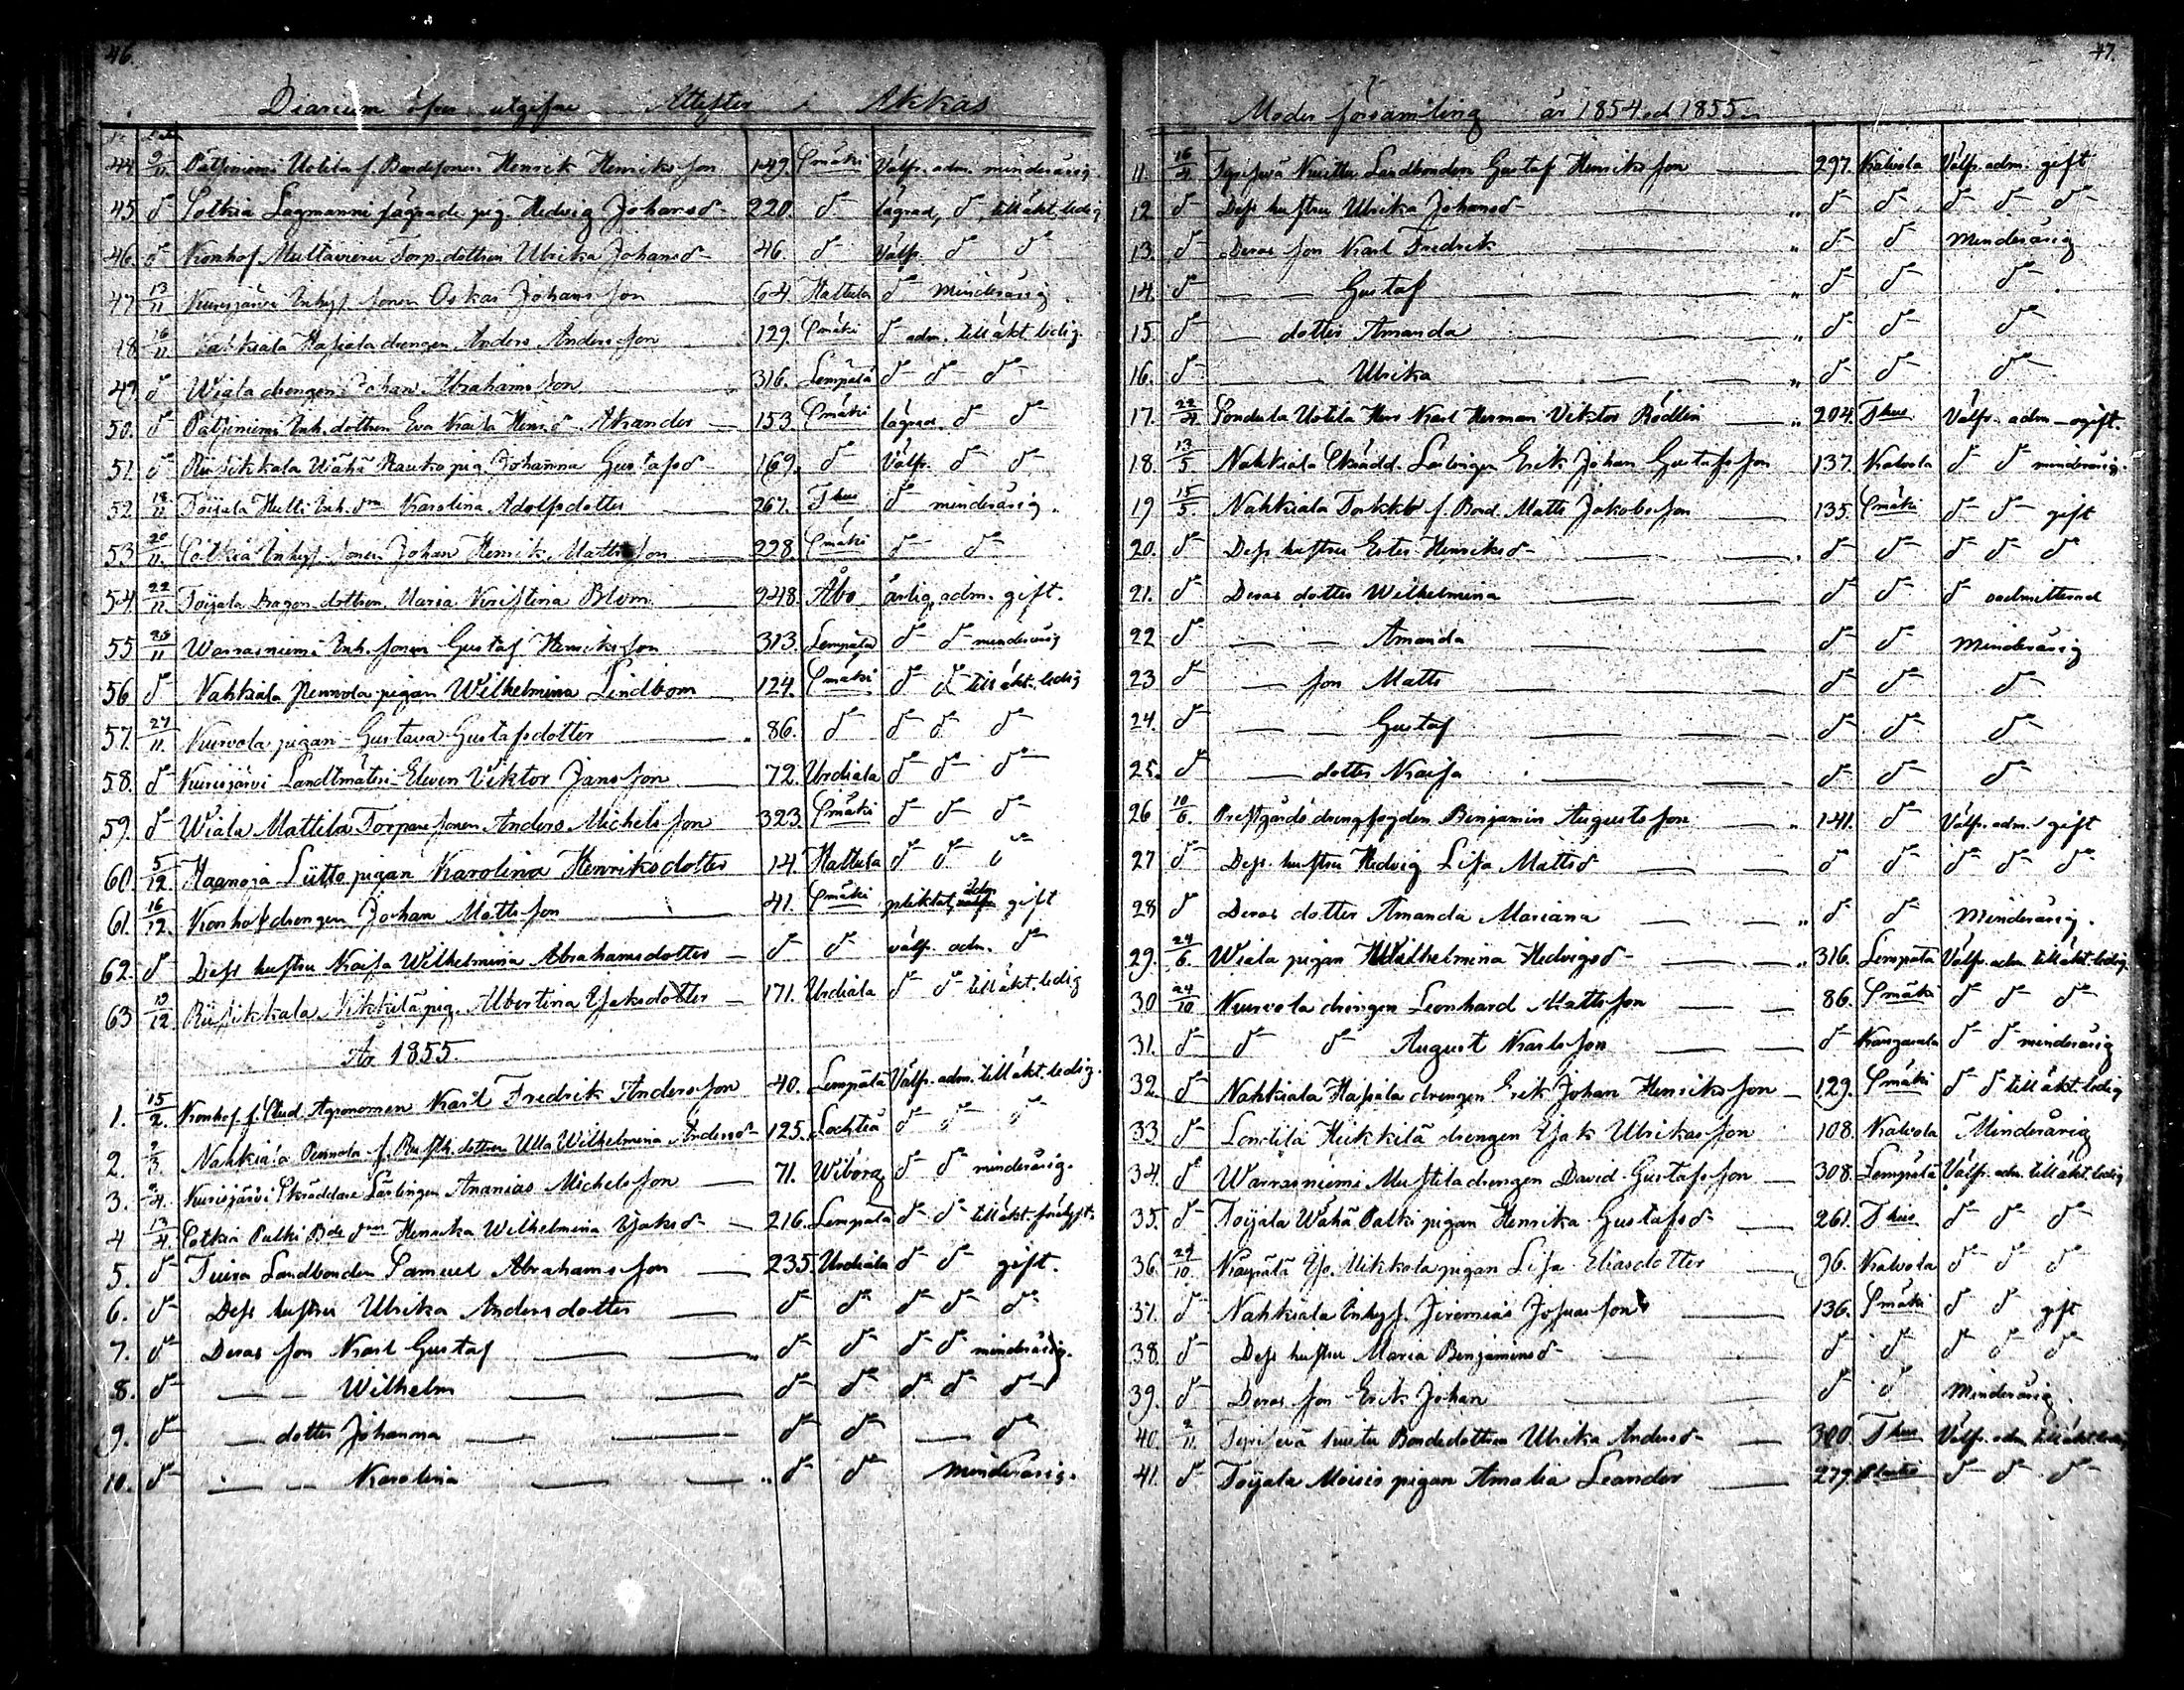 46.
Diarium öfver utgifne Attester i Akkas
No Dat.
44 9/11 Pätsiniemi Uotila f. Bondesonen Henrik Henriksson 149. Smäki Välfr. adm. minderårig
45 do Sotkia Lagmanni lägrade pig. Hedvig Johansdr 220. do lägrad, do, till äkt. ledig
46. do Konhof Multavieru Torp. dottren Ulrika Johansdr 46. do Välfr. do do
47 13/11 Kurisjärvi Inhys. sonen Oskar Johansson 64 Hattula do Minderårig
48 16/11 Nahkiala Hapiala drengen Anders Andersson 129. Smäki do adm. till äkt. ledig
49. do Wiala drengen Johan Abrahamsson 316. Lempälä do do do
50. do Pätsiniemi Inh. dottren Eva Kaisa Henr.dr Akander 153 Smäki lägrad. do do
51. do Riisikkala Wähä Rauko pig. Johanna Gustafsdr 169. do Välfr. do do
52 18/11 Toijala Hulli Inh. drn Karolina Adolfsdotter 267. Thus do minderårig.
53 20/11. Sotkia Inhys. sonen Johan Henrik Mattsson 228. Smäki do do
54 22/11 Toijala Dragon dottren Maria Kristina Blom 248. Åbo ärlig, adm. gift.
55 25/11 Warrasniemi Inh. sonen Gustaf Henriksson 313. Lempälä do do minderårig
56 do Nahkiala Pennola pigan Wilhelmina Lindbom 124. Smäki do do till äkt. ledig
57. 27/11. Kurvola pigan Gustava Gustafsdotter 86. do do do do
58. do Kurisjärvi Landtmäteri Eleven Viktor Jansson 72. Urdiala do do do
59. do Wiala Mattila Torparesonen Anders Michelsson 323. Smäki do do do
60 5/12 Haanoja Siitto pigan Karolina Henriksdotter 14. Hattula do do do
61. 16/12. Konhof drengen Johan Mattsson 41. Smäki pliktat, adm. gift
62. do Dess hustru Kaisa Wilhelmina Abrahamsdotter do do välfr. adm. do
63 19/12 Riisikkala Nikkilä pig. Albertina Isaksdotter 171. Urdiala do do till äkt. ledig
År 1855.
1. 15/2. Konhof f. Stud. Agronomen Karl Fredrik Andersson 40. Lempälä Välfr. adm. till äkt. ledig.
2. 2/3 Nahkiala Pennola f. Rusth. dottren Ulla Wilhelmina Andersdr 125. Lochteå do do do
3. 2/4. Kurisjärvi Skräddare Lärlingen Ananias Michelsson 71. Wiborg do do minderårig.
4 13/4. Sotkia Pulki Bde drn Henrika Wilhelmina Isaksdr 216. Lempälä do do till äkt.
5. do Tuira Landbonden Samuel Abrahamsson 235. Urdiala do do gift.
6. do Dess hustru Ulrika Andersdotter do do do do do
7. do Deras son Karl Gustaf „ do do do do minderårig.
8. do — — Wilhelm do do do do do
9. do — dotter Johanna do do — do
10. do — — Karolina „ do do Minderårig.
47.
Moder församling år 1854 och 1855.
11. 16/4 Terisevä Knuttu Landbonden Gustaf Henriksson 297. Kalvola Välfr. adm. gift
12 do Dess hustru Ulrika Johansdr „ do do do do do
13. do Deras son Karl Fredrik „ do do Minderårig
14. do — — Gustaf „ do do do
15. do — dotter Amanda „ do do do
16. do — — Ulrika „ do do do
17. 22/4 Sondala Uotila Herr Karl Herman Viktor Bödlin „ 204. Thus Välfr. adm. ogift.
18. 13/5. Nahkiala Skrädd. Lärlingen Erik Johan Gustafsson 137. Kalvola do do minderårig.
19 15/5. Nahkiala Torkko f. Bond. Matts Jakobsson 135. Smäki do do gift
20. do Dess hustru Ester Henriksdr do do do do do
21. do Deras dotter Wilhelmina do do do oadmitterad
22 do — — Amanda do do Minderårig
23 do — son Matts do do do
24. do — — Gustaf do do do
25. do — dotter Kaisa do do do
26 10/6. Prestgårds drengfogden Benjamin Augustsson „ 141. do Välfr. adm. gift
27 do Dess hustru Hedvig Lisa Mattsdr do do do do do
28 do Deras dotter Amanda Mariana „ do do Minderårig.
29. 24/6 Wiala pigan Wilhelmina Hedvigsdr „ 316. Lempälä Välfr. adm. till äkt. ledig.
30 24/10 Kurvola drengen Leonhard Mattsson 86. Smäki do do do
31. do do do August Karlsson do Kangasala do do minderårig
32. do Nahkiala Hapiala drengen Erik Johan Henriksson 129. Smäki do do till äkt. ledig
33 do Lontila Heikkilä drengen Isak Ulrikasson 108. Kalvola Minderårig
34. do Warrasniemi Mustila drengen David Gustafsson 308. Lempälä Välfr. adm. till äkt. ledig
35. do Toijala Wähä Palki pigan Henrika Gustafsdr 261. Thus do do do
36. 29/10. Kärpälä Yli Mikkola pigan Lisa Eliasdotter 96. Kalvola do do do
37. do Nahkiala Inhys. Jeremias Josuasson 136. Smäki do do gift
38. do Dess hustru Maria Benjaminsdr do do do do do
39. do Deras son Erik Johan do do Minderårig.
40. 2/11. Terisevä Knuttu Bondedottren Ulrika Andersdr 300. Thus Välfr. adm. till äkt. ledig
41. do Toijala Moisio pigan Amalia Leander 279. do do do